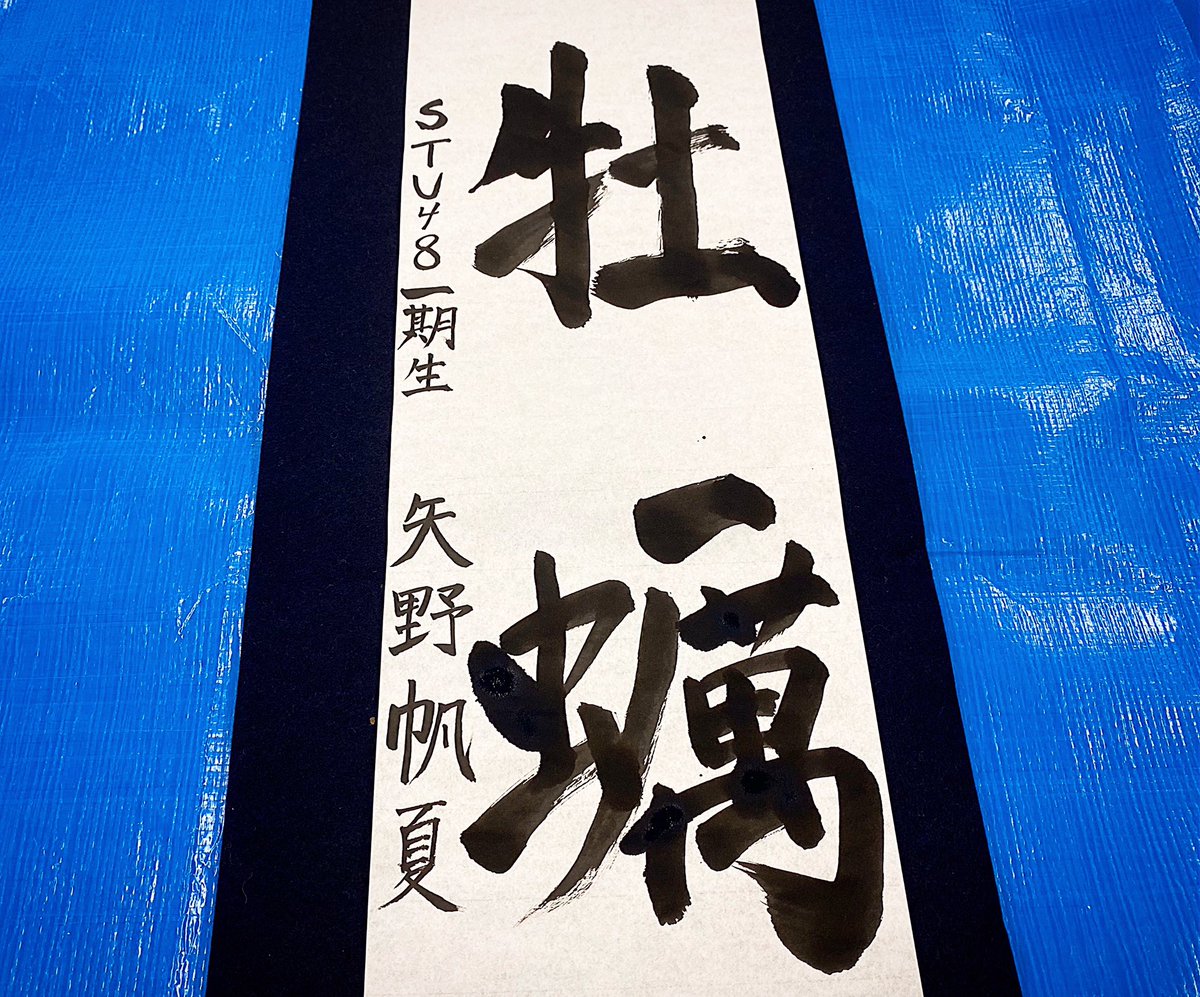 牡蠣
STU48一期生 矢野帆夏